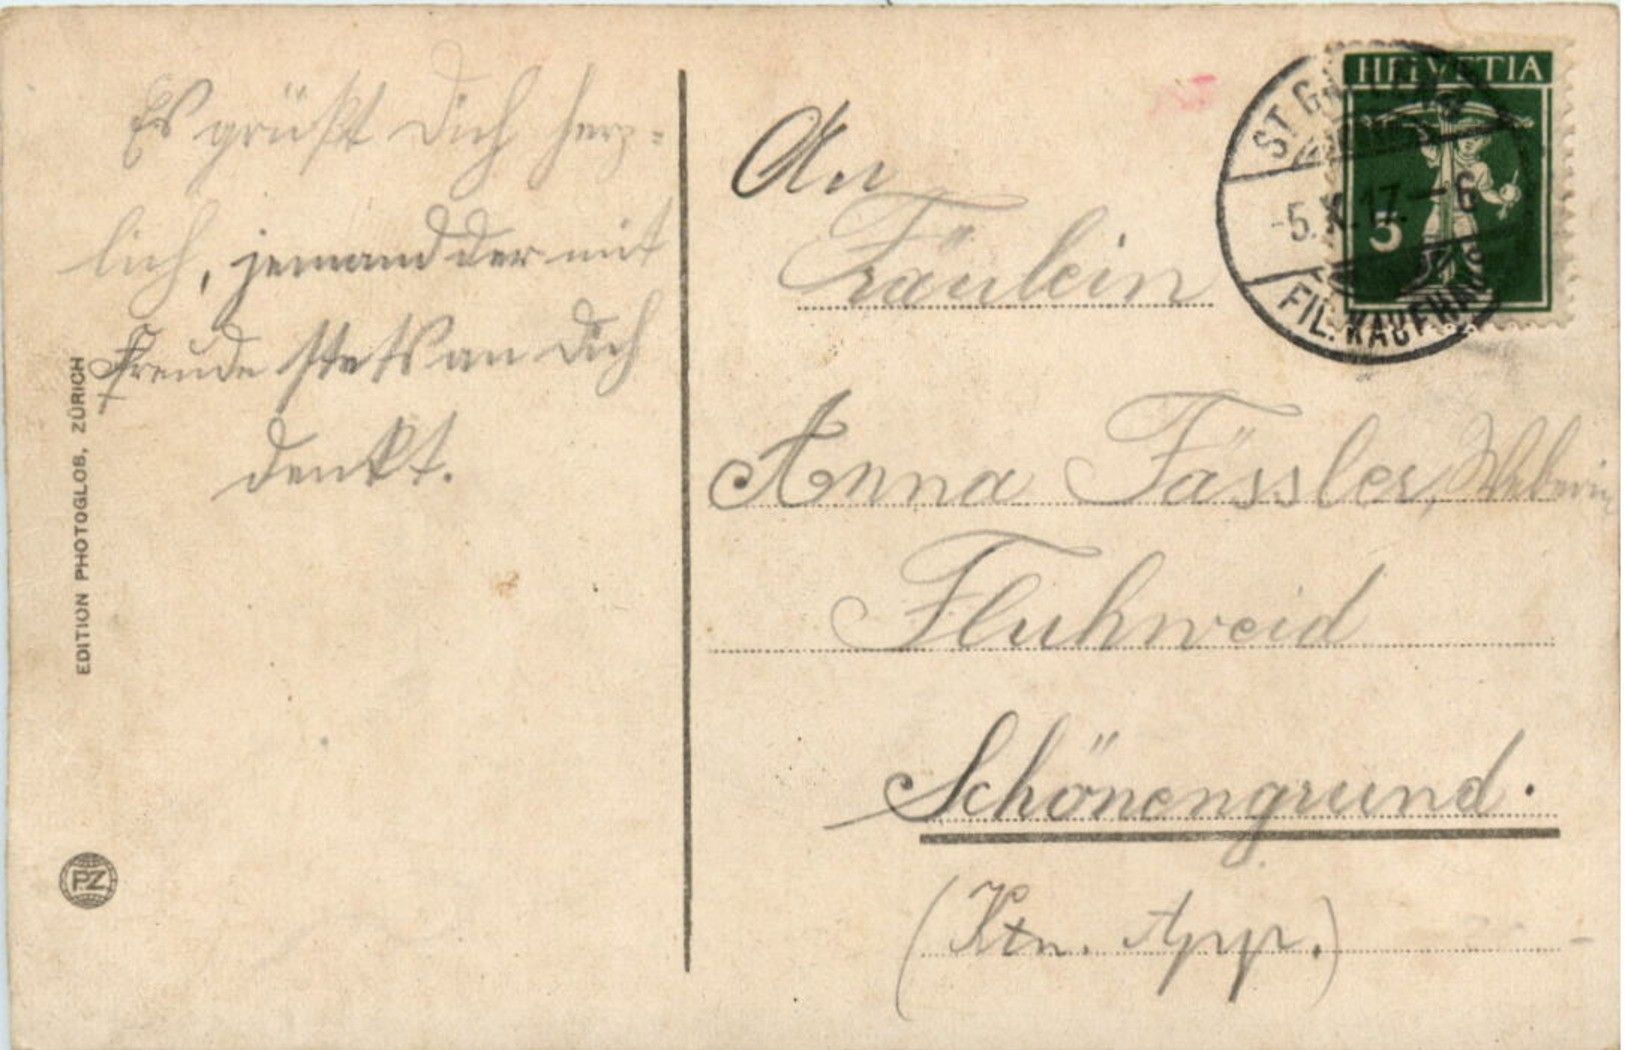 Es grüßt Dich herz=
lich, jemand der mit
Freude stets an Dich
denkt.
EDITION PHOTOGLOB, ZÜRICH
PZ
An
Fräulein
Anna Fässler, Weberin
Fluhweid
Schönengrund.
(Ktn. App.)
HELVETIA
5
ST. GALLEN
-5.X.17.-6
FIL. KAUFHAUS